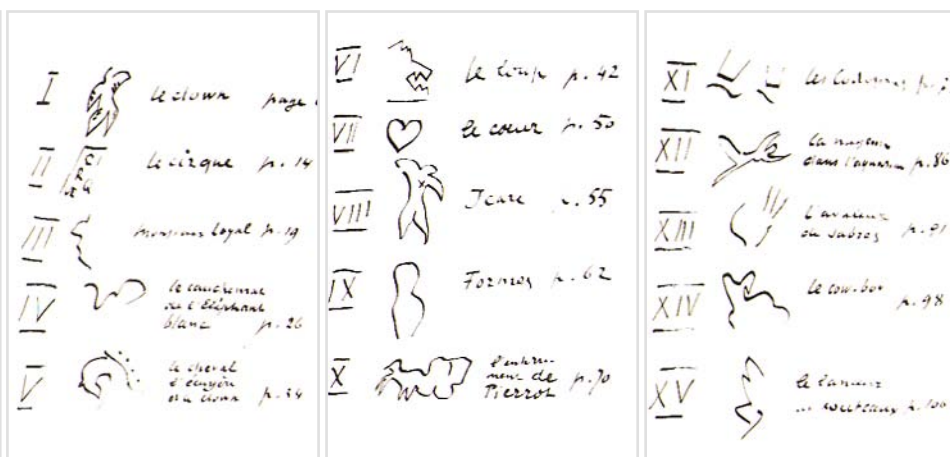 I le clown page
II le cirque p. 14
III monsieur Loyal p. 19
IV le cauchemar
de l'Éléphant
blanc p. 26
V le cheval
l'écuyère
et le clown p. 34
VI le loup p. 42
VII le cœur p. 50
VIII Icare p. 55
IX Formes p. 62
X l'enterre-
ment de
Pierrot p. 70
XI les Codomas p. 7
XII la nageuse
dans l'aquarium p. 86
XIII l'avaleur
de sabres p. 91
XIV le cow-boy p. 98
XV le lanceur
de couteaux p. 100